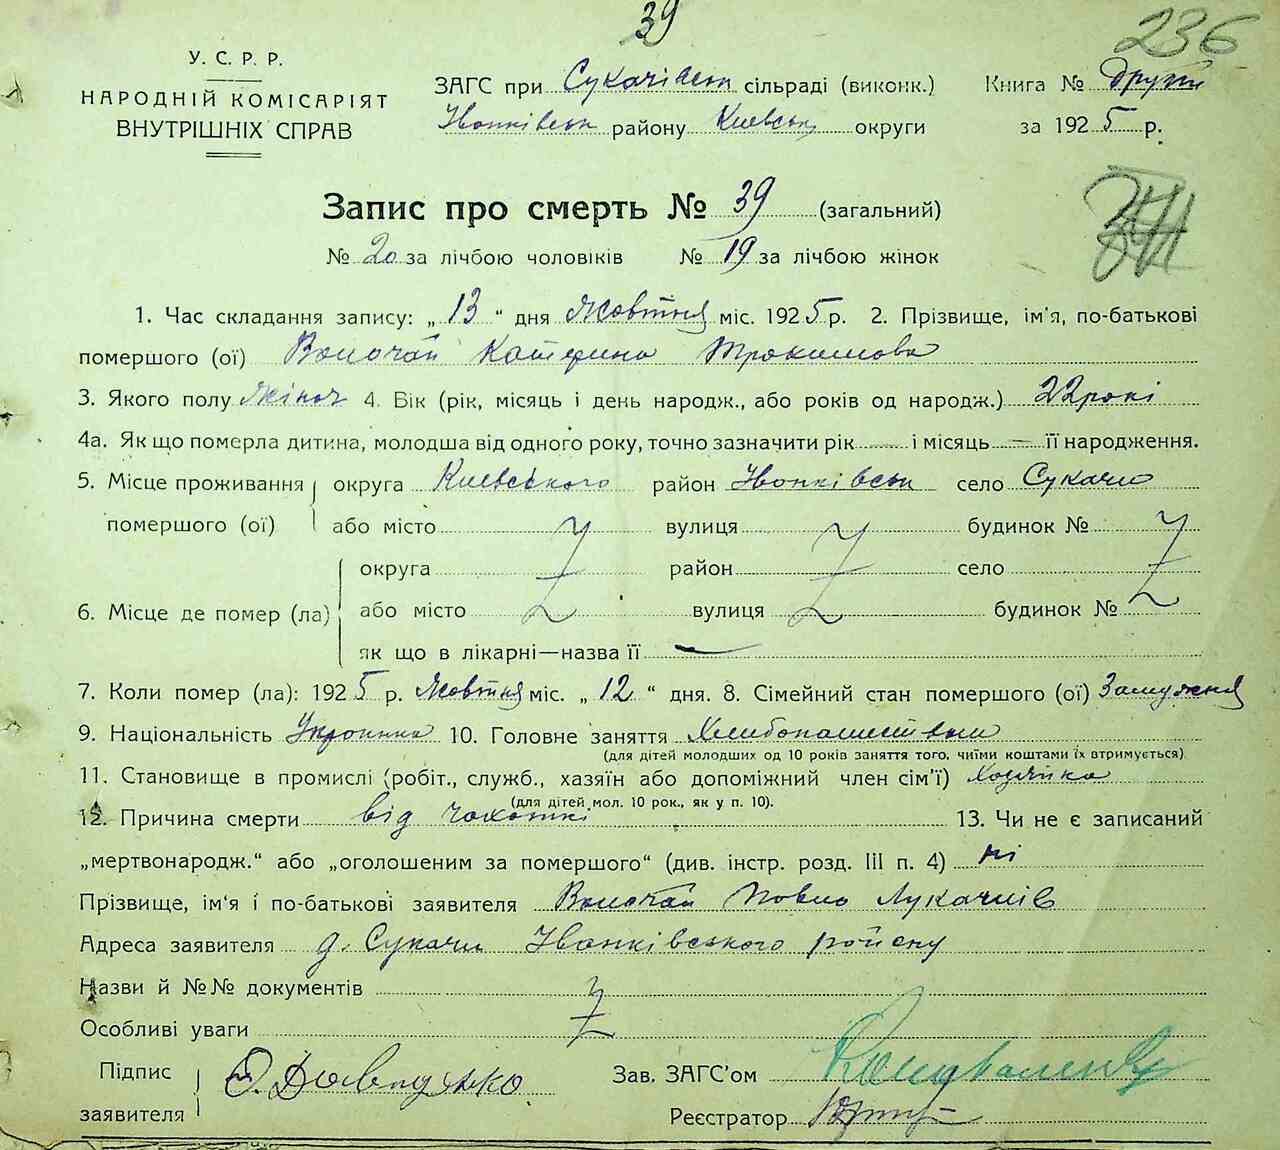 39
236
У. С. Р. Р.
НАРОДНІЙ КОМІСАРІЯТ
ВНУТРІШНІХ СПРАВ
ЗАГС при Сукачівськ сільраді (виконк.)
Іванківськ району Київськ округи
Книга № други
за 1925 р.
Запис про смерть № 39 (загальний)
№ 20 за лічбою чоловіків № 19 за лічбою жінок
1. Час складання запису: „ 13 “ дня Жовтня міс. 1925 р. 2. Прізвище, ім'я, по-батькові
помершого (ої) Волочай Катерина Трохимова
3. Якого полу жіноч 4. Вік (рік, місяць і день народж., або років од народж.) 22 рокі
4а. Як що померла дитина, молодша від одного року, точно зазначити рік — і місяць — її народження.
5. Місце проживання округа Киевського район Іванківськ село Сукачи
помершого (ої) або місто вулиця будинок №
округа район село
6. Місце де помер (ла) або місто вулиця будинок №
як що в лікарні—назва її —
7. Коли помер (ла): 1925 р. Жовтня міс. „ 12 “ дня. 8. Сімейний стан помершого (ої) Замужня
9. Національність Украинка 10. Головне заняття Хлибопашеством
(для дітей молодших од 10 років заняття того, чиїми коштами їх втримується)
11. Становище в промислі (робіт., служб., хазяїн або допоміжний член сім'ї) Хозяйка
(для дітей мол. 10 рок., як у п. 10).
12. Причина смерти від чахоткі 13. Чи не є записаний
„мертвонародж.“ або „оголошеним за помершого“ (див. інстр. розд. III п. 4) ні
Прізвище, ім'я і по-батькові заявителя Волочай Павло Лукачків
Адреса заявителя д. Сукачи Іванківського району
Назви й №№ документів
Особливі уваги
Підпис
заявителя
Зав. ЗАГС'ом
Реєстратор